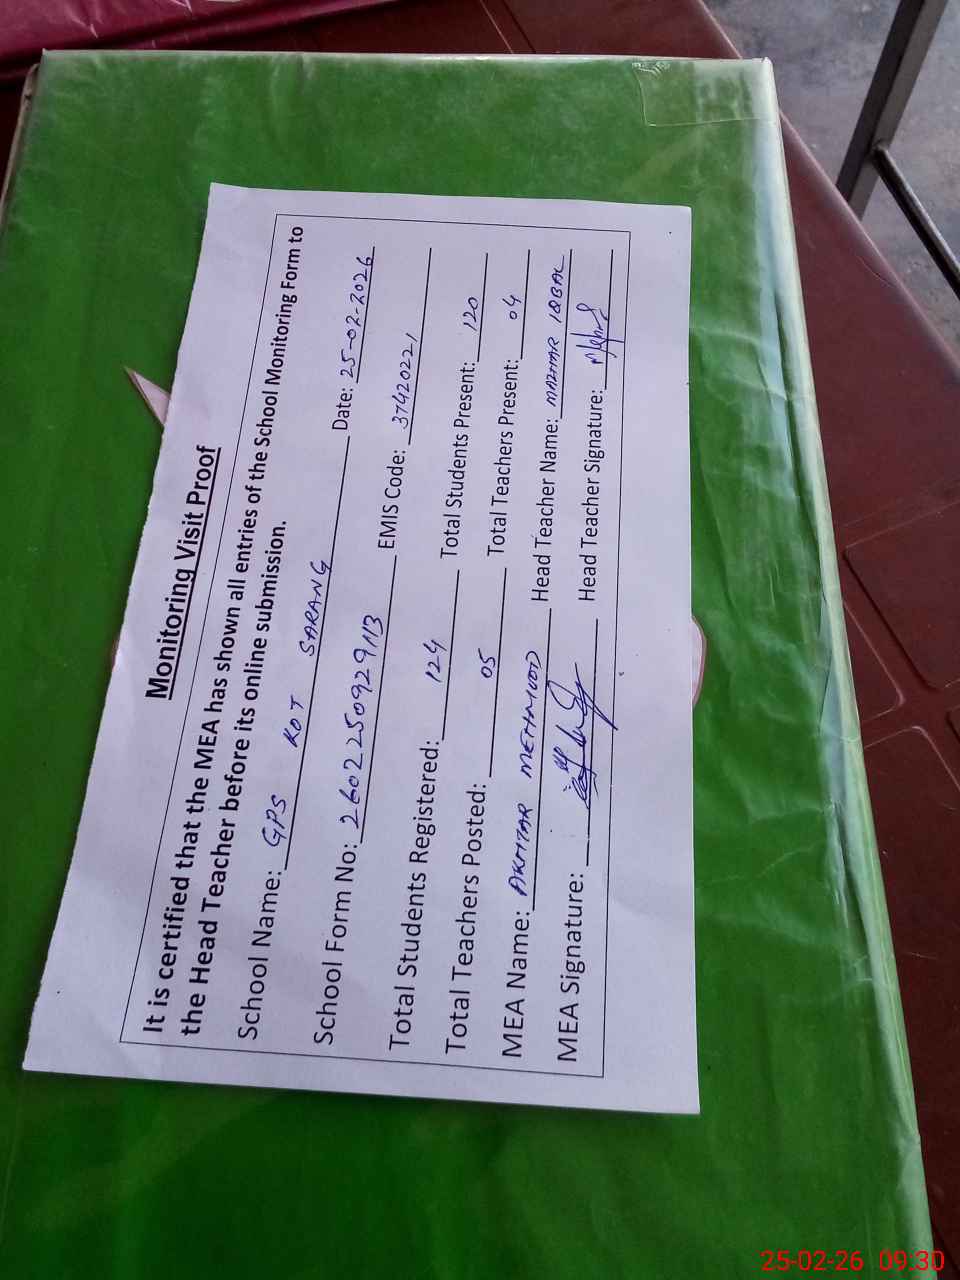 Monitoring Visit Proof
It is certified that the MEA has shown all entries of the School Monitoring Form to
the Head Teacher before its online submission.
School Name: GPS KOT SARANG Date: 25-02-2026
School Form No: 2602250929113 EMIS Code: 37420221
Total Students Registered: 124 Total Students Present: 120
Total Teachers Posted: 05 Total Teachers Present: 04
MEA Name: AKHTAR MEHMOOD Head Teacher Name: MAZHAR IQBAL
MEA Signature: Head Teacher Signature:
25-02-26 09.30